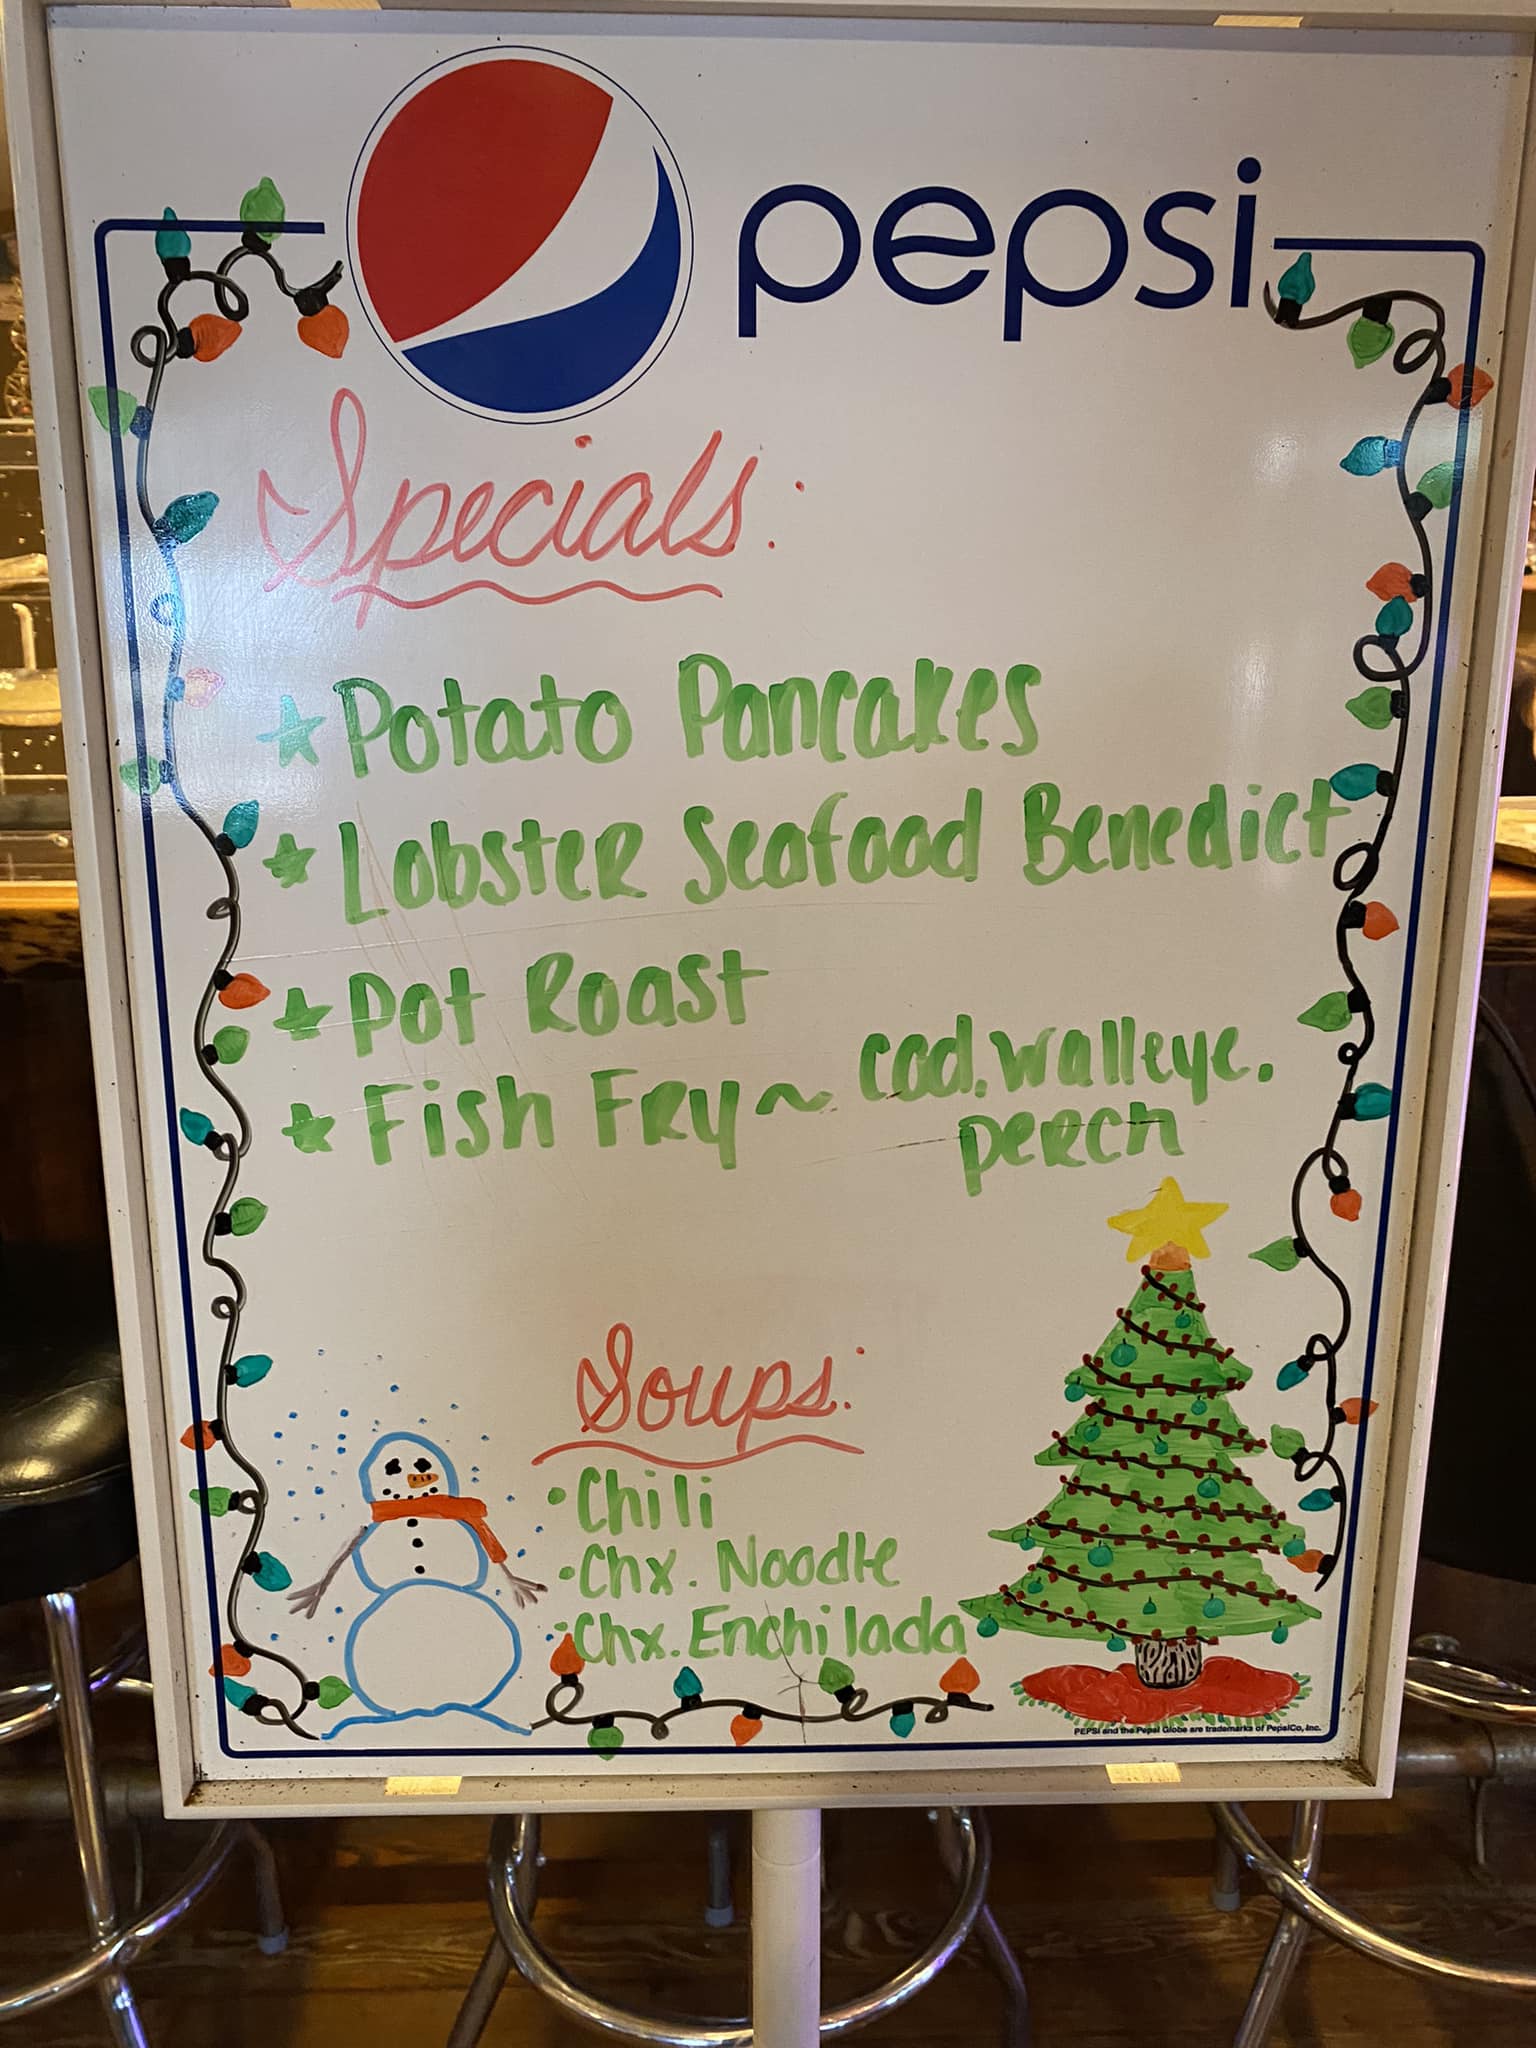 pepsi
Specials:
★ Potato Pancakes
★ Lobster Seafood Benedict
★ Pot Roast
★ Fish Fry ~ cod, walleye,
perch
Soups:
• Chili
• Chx. Noodle
• Chx. Enchilada
PEPSI and the Pepsi Globe are trademarks of PepsiCo, Inc.